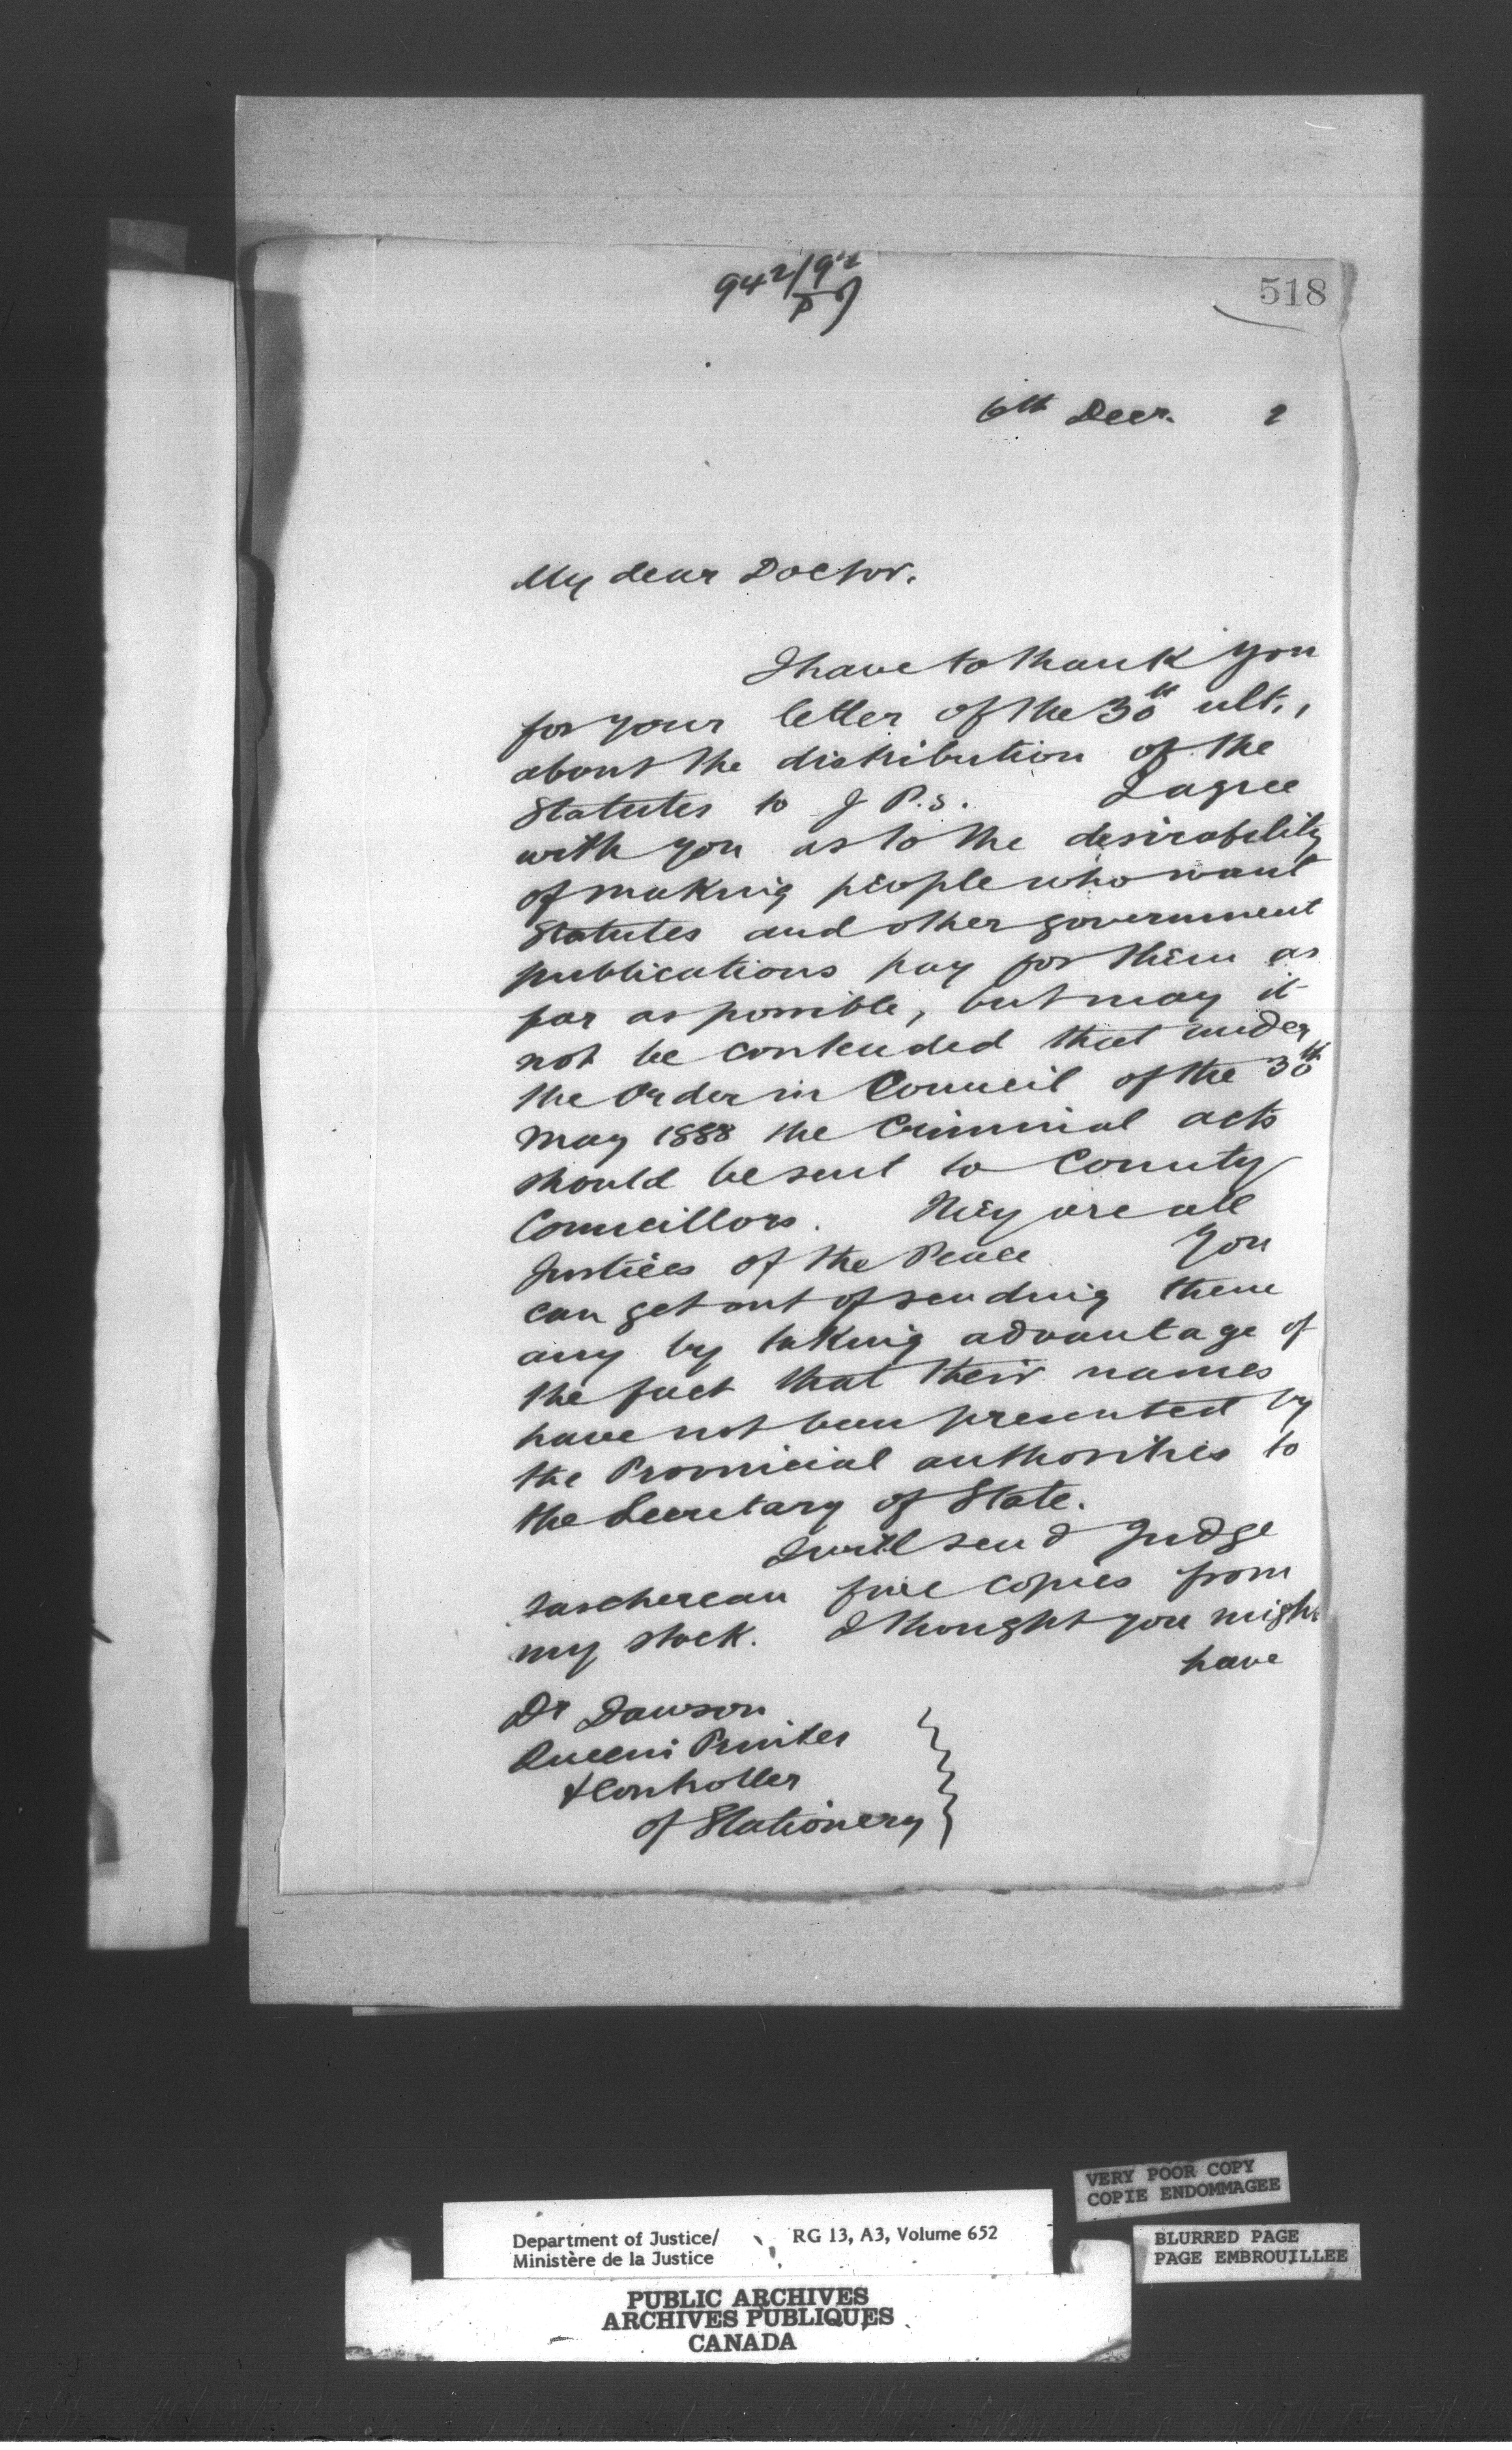 942/92
518
6th Decr. 2
My dear Doctor.
I have to thank you
for your letter of the 30th ult.,
about the distribution of the
Statutes to J P.s. I agree
with you as to the desirability
of making people who want
Statutes and other government
publications pay for them as
far as possible, but may it
not be contended that under
the Order in Council of the 30th
May 1888 the Criminal acts
should be sent to County
Councillors. They are all
Justices of the Peace You
can get out of sending them
any by taking advantage of
the fact that their names
have not been presented by
the Provincial authorities to
the Secretary of State.
I will send Judge
Taschereau five copies from
my stock. I thought you might
have
Dr Dawson
Queen's Printer
& Controller
of Stationery
VERY POOR COPY
COPIE ENDOMMAGEE
Department of Justice/ RG 13, A3, Volume 652
Ministère de la Justice
BLURRED PAGE
PAGE EMBROUILLEE
PUBLIC ARCHIVES
ARCHIVES PUBLIQUES
CANADA